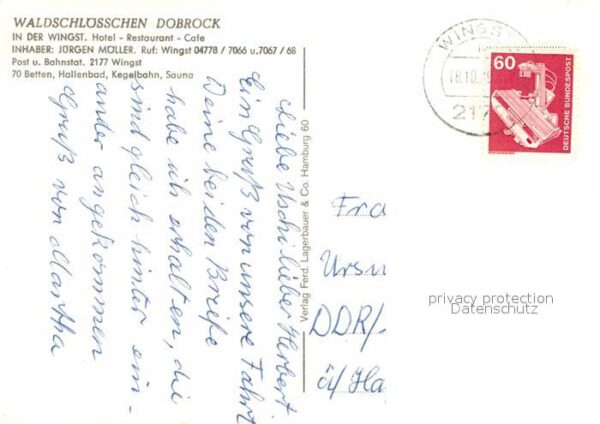 WALDSCHLÖSSCHEN DOBROCK
IN DER WINGST. Hotel - Restaurant - Cafe
INHABER: JÜRGEN MÖLLER. Ruf: Wingst 04778 / 7066 u.7067 / 68
Post u. Bahnstat. 2177 Wingst
70 Betten, Hallenbad, Kegelbahn, Sauna
Liebe Uschi, lieber Herbert.
Ein Gruß von unsere Fahrt
Deine beiden Briefe
habe ich erhalten, die
sind gleich hinter ein-
ander angekommen
Gruß von Martha
Verlag Ferd. Lagerbauer & Co. Hamburg 60
WINGST
18.10.
217
60
DEUTSCHE BUNDESPOST
Fra
Ursu
DDR/-
privacy protection
Datenschutz